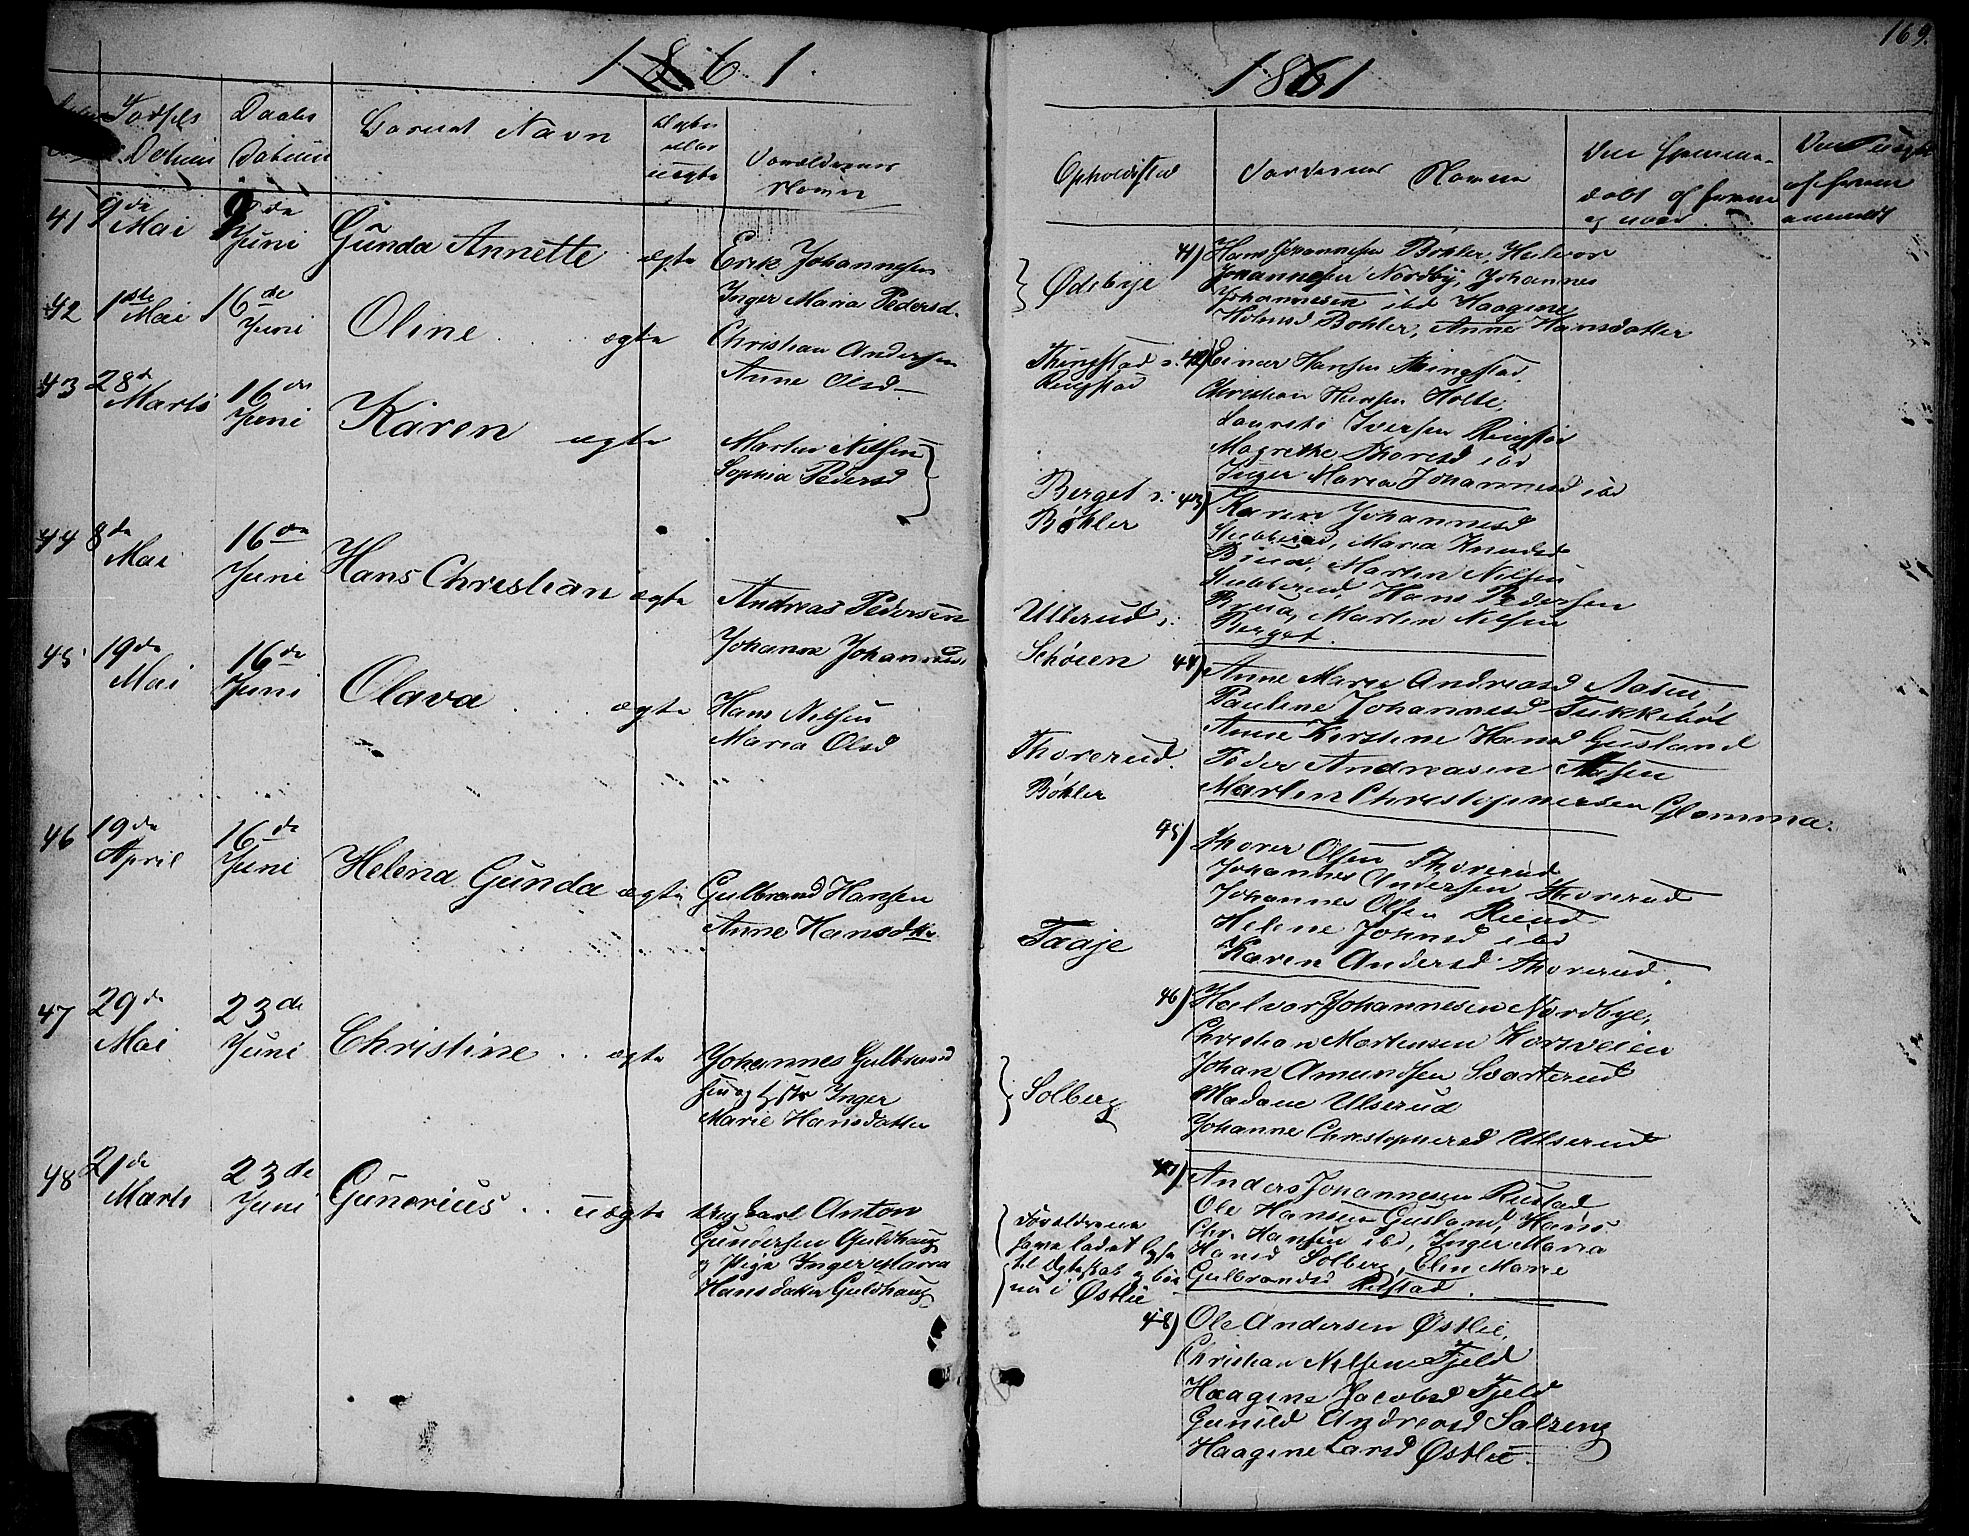 1861.
Fødsels
Datum
Daabs
Datum
Barnets Navn
Ægte
eller
uægte
Forældrenes
Navn
41 9de Mai
9de Juni
Gunda Annette
ægte
Erik Johannesen
Inger Maria Pedersd.
42 1ste Mai
16de Juni
Oline
ægte
Christian Andersen
Anne Olsd
43 28de Marts
16de Juni
Karen
ægte
Martin Nilsen
Sophia Pedersd
44 8de Mai
16de Juni
Hans Christian
ægte
Andreas Pedersen
Johanne Johannesd
45 19de Mai
16de Juni
Olava
ægte
Hans Nilsen
Maria Olsd
46 19de April
16de Juni
Helena Gunda
ægte
Gulbrand Hansen
Anne Hansdtr
47 29de Mai
23de Juni
Christine
ægte
Johannes Gulbrand
sen og Hstr Inger
Marie Hansdatter
48 21de Marts
23de Juni
Gunerius
uægte
Ung Karl Anton
Gundersen Guldhaug
og Pige Inger Maria
Hansdatter Guldhaug
169.
1861
Opholdsted
Faddernes Navne
Om hjemme-
døbt af hvem
og naar
Om uægte
af hvem
anmeldt
Ødsbye
41) Hans Johannesen Bøhler, Halvor
Johannesen Nordby, Johannes
Johannesen ibd Haagine
Hansd Bøhler, Anne Hansdatter
Thingstad
Ringstad
42) Einar Hansen Thingstad,
Christian Hansen Holte,
Laurits Iversen Ringstad
Magrethe Thoresd ibd
Inger Maria Johannesd ibd
Berget
Bøhler
43) Karen Johannesd
Stubberud, Maria Knudsd
Brua, Martin Nilsen
Stubberud, Hans Pedersen
Brua, Martin Nilsen
Berget.
Ulterud
Schøien
44) Anne Marie Andreasd Aasen,
Pauline Johannesd Tukkebøl
Anne Kirstine Hansd Gusland
Peder Andreasen Aasen
Martin Christophersen Glomma.
Thorerud.
Bøhler
45) Thorer Olsen Thorerud
Johannes Andersen Thorerud
Johannes Olsen Ruud
Helene Johnsd ibd
Karen Andersd Thorerud.
Taaje
46) Halvor Johannesen Nordbye,
Christian Martensen Korsveien
Johan Amundsen Svarterud
Madame Ulserud
Johanne Christophersd Ulserud
Solberg
47) Anders Johannesen Rustad
Ole Hansen Gusland, Hans
Chr. Hansen ibd, Inger Maria
Hansd Solberg, Elen Marie
Gulbrandsd Rustad.
Forældrene
have ladet lyse
til Ægteskab og boe
nu i Østlie
48) Ole Andersen Østlie,
Christian Nilsen Fjeld
Haagine Jacobsd Fjeld
Gunild Andreasd Salzeng
Haagine Larsd Østlie.